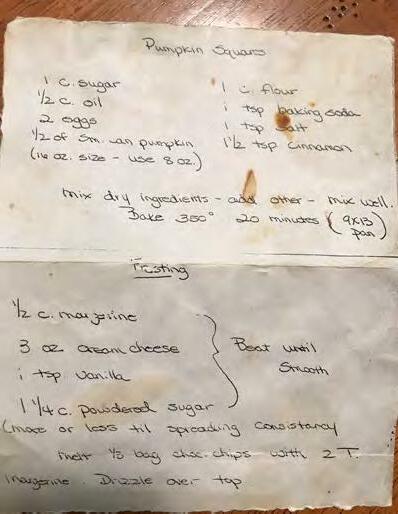 Pumpkin Squares
1 c. sugar
1/2 c. oil
2 eggs
1/2 of sm. can pumpkin
(16 oz. size - use 8 oz.)
1 c. flour
1 tsp baking soda
1 tsp salt
1 1/2 tsp cinnamon
mix dry ingredients - add other - mix well.
Bake 350° 20 minutes (9x13 pan)
Frosting
1/2 c. margerine
3 oz cream cheese
1 tsp vanilla
1 1/4 c. powdered sugar
Beat until
smooth
(more or less til spreading consistancy
melt 1/3 bag choc. chips with 2 T.
margerine. Drizzle over top